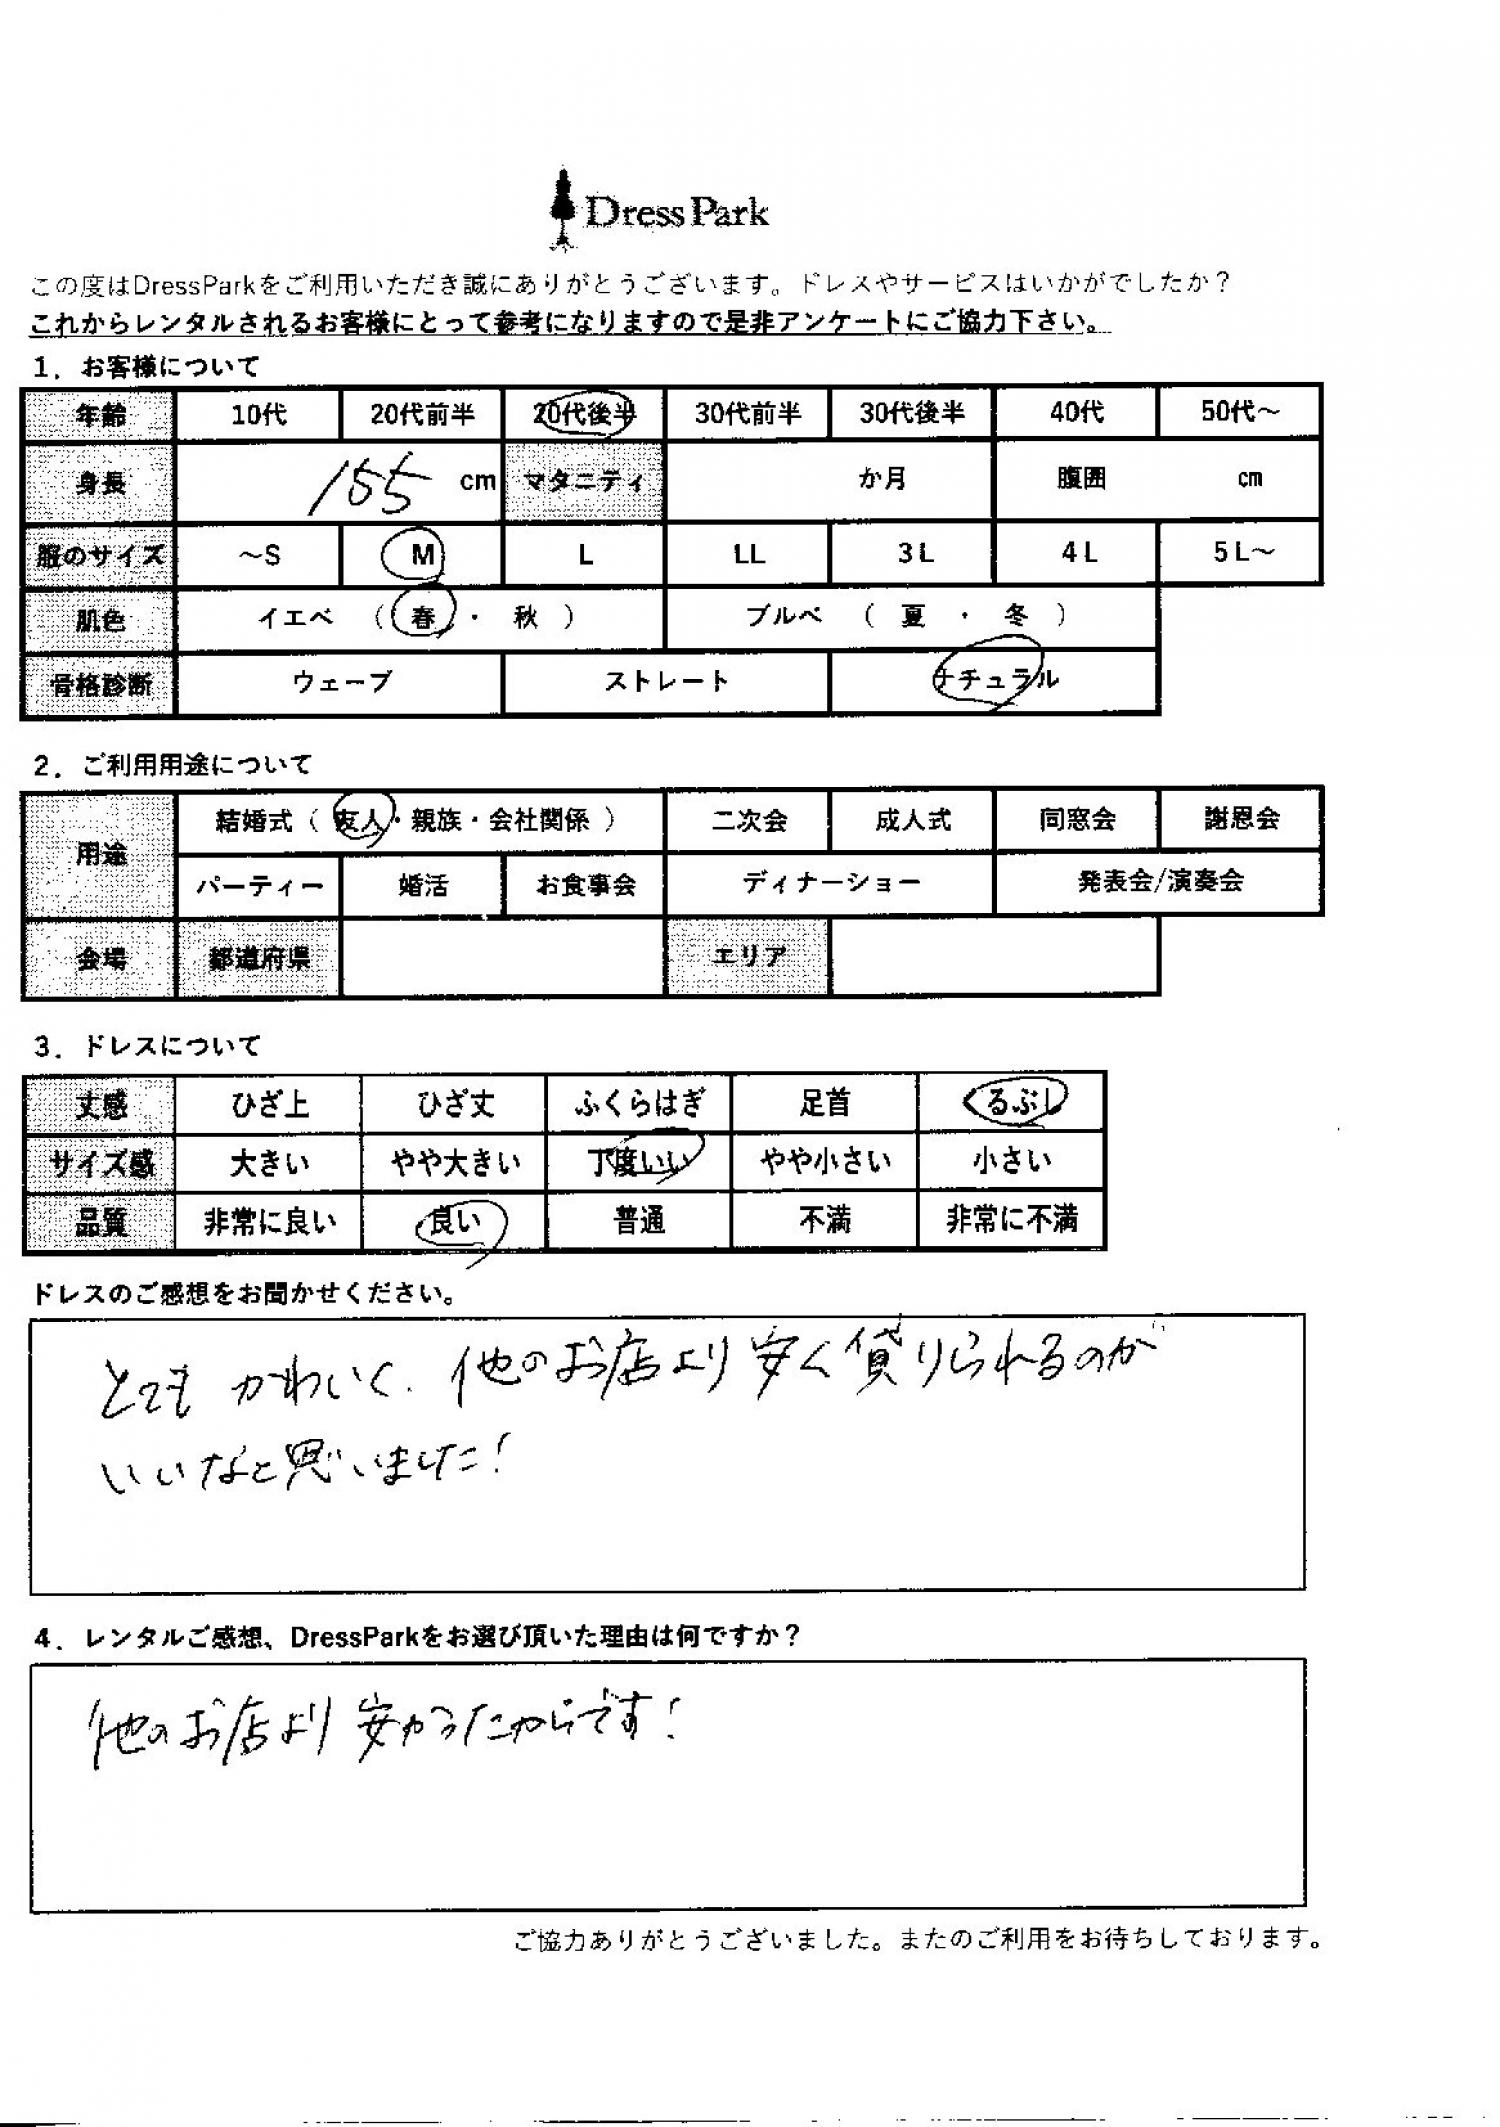 DressPark
この度はDressParkをご利用いただき誠にありがとうございます。ドレスやサービスはいかがでしたか？
これからレンタルされるお客様にとって参考になりますので是非アンケートにご協力下さい。
1．お客様について
年齢 10代 20代前半 20代後半 30代前半 30代後半 40代 50代～
身長 155 cm マタニティ か月 腹囲 cm
服のサイズ ～S M L LL 3L 4L 5L～
肌色 イエベ （ 春 ・ 秋 ） ブルベ （ 夏 ・ 冬 ）
骨格診断 ウェーブ ストレート ナチュラル
2．ご利用用途について
用途 結婚式（ 友人・親族・会社関係 ） 二次会 成人式 同窓会 謝恩会
パーティー 婚活 お食事会 ディナーショー 発表会/演奏会
会場 都道府県 エリア
3．ドレスについて
丈感 ひざ上 ひざ丈 ふくらはぎ 足首 くるぶし
サイズ感 大きい やや大きい 丁度いい やや小さい 小さい
品質 非常に良い 良い 普通 不満 非常に不満
ドレスのご感想をお聞かせください。
とてもかわいく、他のお店より安く貸りられるのが
いいなと思いました！
4．レンタルご感想、DressParkをお選び頂いた理由は何ですか？
他のお店より安かったからです！
ご協力ありがとうございました。またのご利用をお待ちしております。